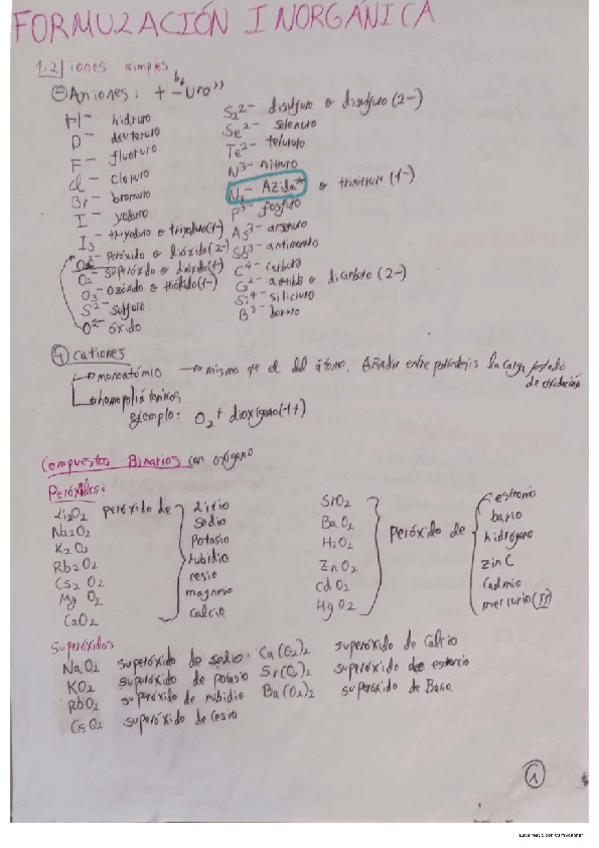 FORMULACIÓN INORGÁNICA
1.2) iones simples
⊖ Aniones: + "-uro"
H⁻ hidruro
D⁻ deuteruro
F⁻ fluoruro
Cl⁻ cloruro
Br⁻ bromuro
I⁻ yoduro
I₃⁻ triyoduro o triyoduro(1-)
O₂²⁻ peróxido o dióxido(2-)
O₂⁻ superóxido o dióxido(1-)
O₃⁻ ozónido o trióxido(1-)
S²⁻ sulfuro
O²⁻ óxido
S₂²⁻ disulfuro o disulfuro(2-)
Se²⁻ selenuro
Te²⁻ telururo
N³⁻ nitruro
N₃⁻ Azida o trinitruro(1-)
P³⁻ fosfuro
As³⁻ arsenuro
Sb³⁻ antimonuro
C⁴⁻ carburo
C₂²⁻ o dicarburo(2-)
Si⁴⁻ siliciuro
B³⁻ boruro
cationes
monoatómio → mismo que el del átomo. Añadir entre paréntesis la carga
de oxidación
homopoliátomicos
ejemplo: O₂⁺ dioxígeno(1+)
Compuestos Binarios con oxígeno
Peróxidos:
Li₂O₂ peróxido de litio
Na₂O₂ sodio
K₂O₂ potasio
Rb₂O₂ rubidio
Cs₂O₂ cesio
MgO₂ magnesio
CaO₂ calcio
SrO₂ estroncio
BaO₂ bario
H₂O₂ peróxido de hidrógeno
ZnO₂ zinC
CdO₂ cadmio
HgO₂ mercurio(II)
Superóxidos
NaO₂ superóxido de sodio. Ca(O₂)₂ superóxido de Calcio
KO₂ superóxido de potasio Sr(O₂)₂ superóxido de
RbO₂ superóxido de rubidio Ba(O₂)₂ superóxido de Bario.
CsO₂ superóxido de Cesio
1